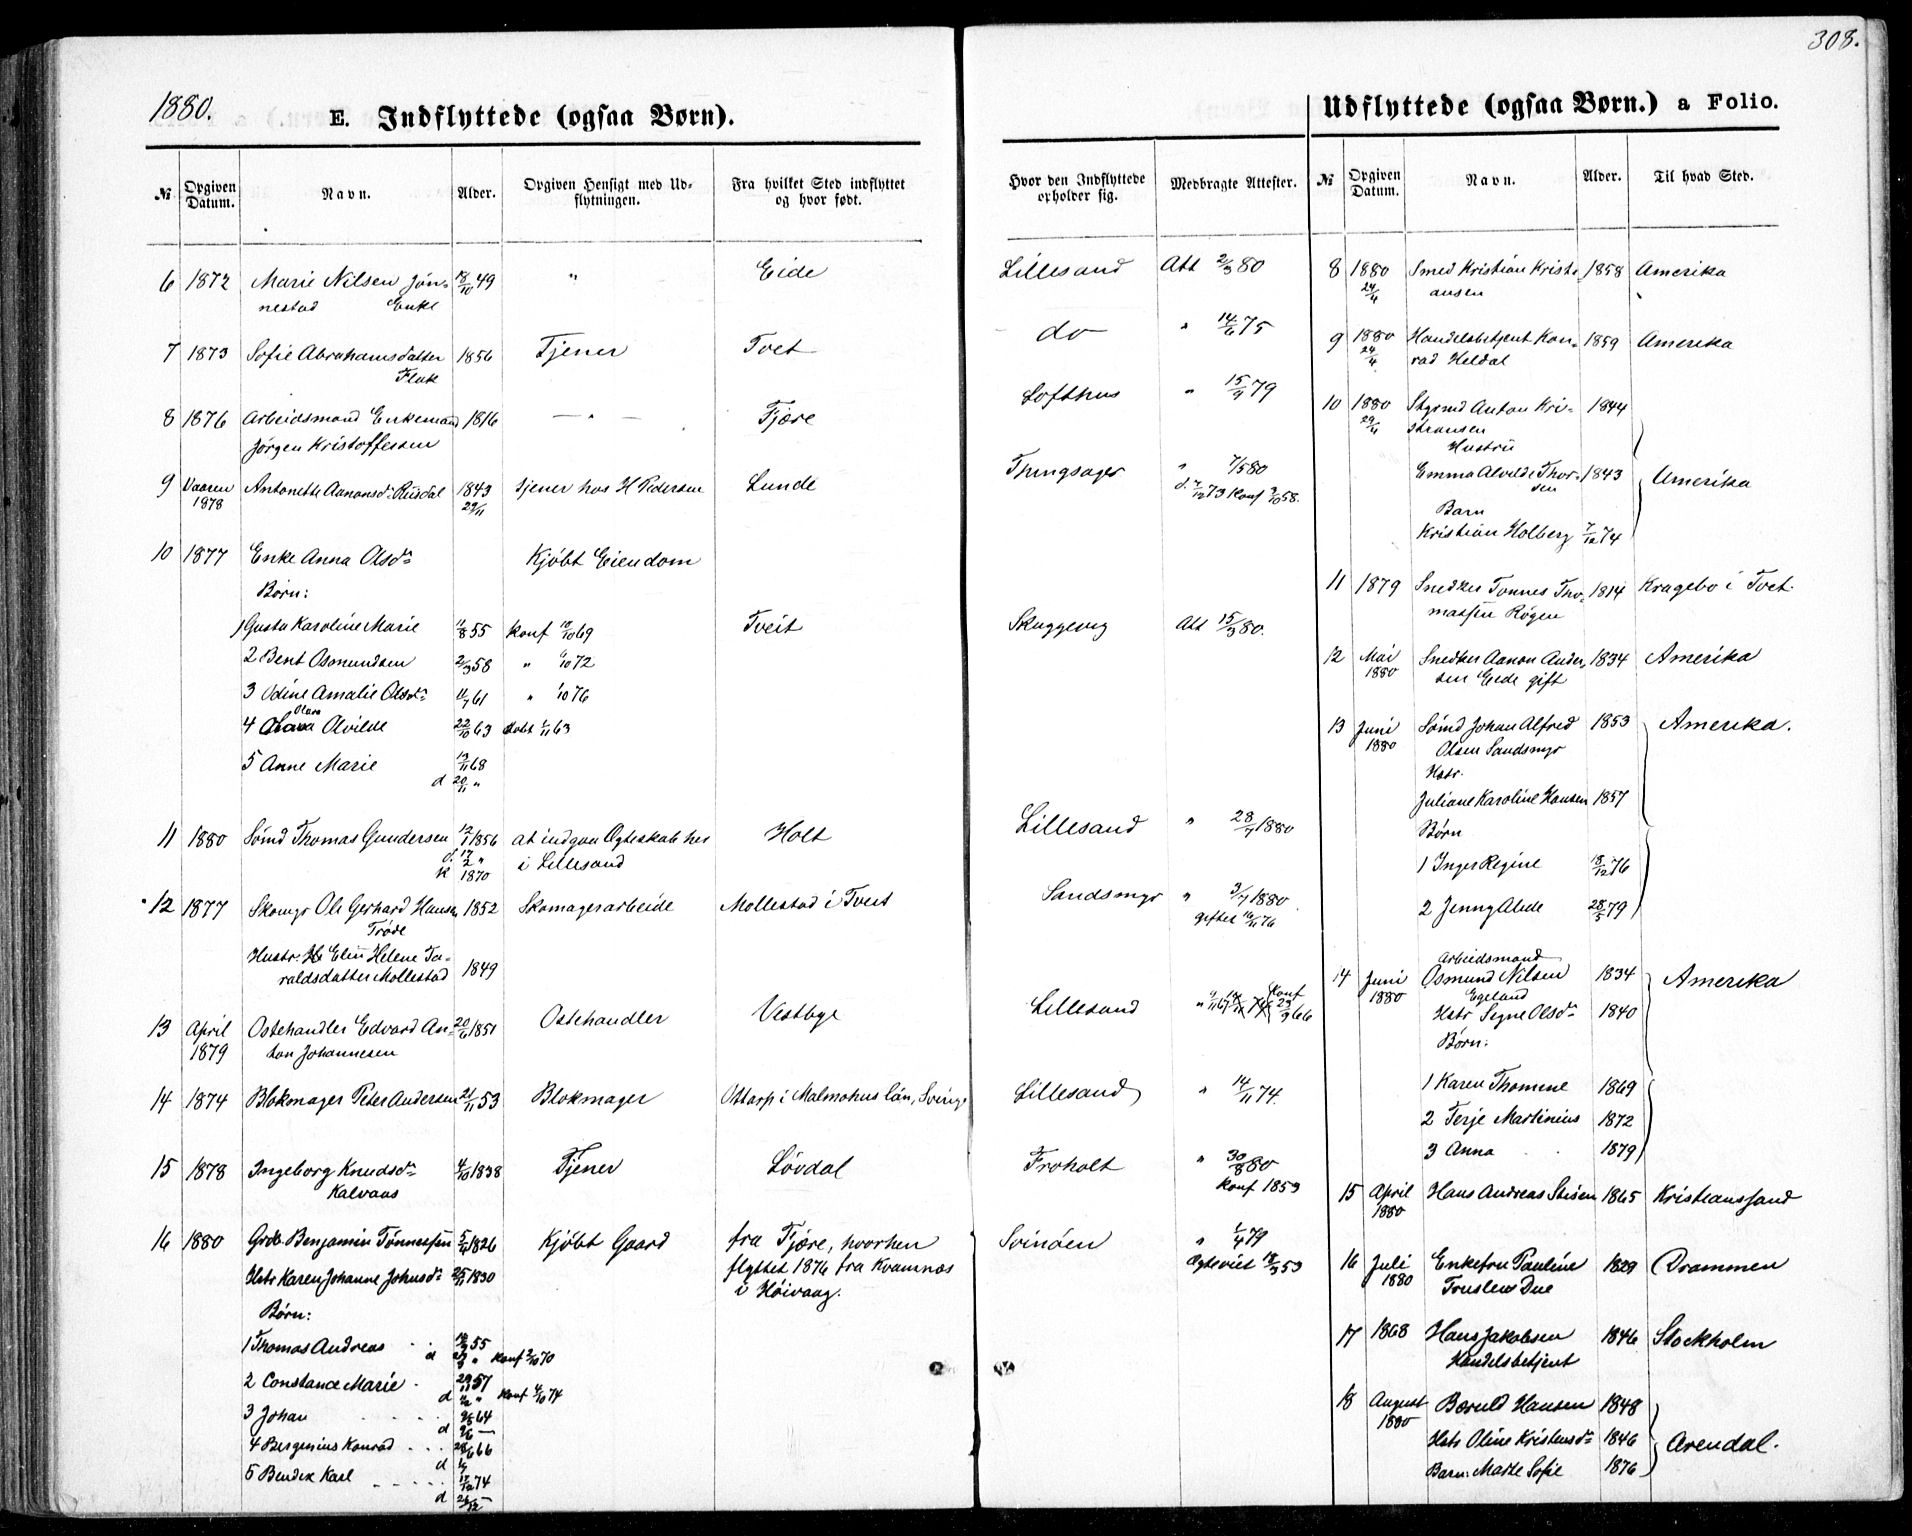 308.
1880.
E. Indflyttede (ogsaa Børn).
№ Opgiven Datum. Navn. Alder. Opgiven Hensigt med Udflytningen. Fra hvilket Sted indflyttet og hvor født. Hvor den Indflyttede opholder sig. Medbragte Attester.
6 1872 Marie Nilsen Jøn- 18/10 49 " Eide Lillesand Att 2/3 80
nestad Enke
7 1873 Sofie Abrahamsdatter 1856 Tjener Tvet do " 14/6 75
Flak
8 1876 Arbeidsmand Enkemand 1816 — " — Fjære Lofthus " 15/4 79
Jørgen Kristoffersen
9 Vaaren 1878 Antonette Aanonsd: Risdal 1843 29/11 tjener hos H Pedersen Lunde Thingsager " 7/5 80
Konf 58.
10 1877 Enke Anna Olsdr Kjøbt Eiendom
Børn:
1 Gusta Karoline Marie 11/8 55 Konf 10/10 69 Tveit Skuggevig Att 15/3 80.
2 Bent Osmundsen 2/3 58 " 6/10 72
3 Udine Amalie Olsdr 11/7 61 " 1/10 76
Olava
4 Alvilde 22/10 63 døbt 1/11 63
5 Anne Marie 13/11 68
d 20/11 "
11 1880 Sømd Thomas Gundersen 12/1 1856 at indgaa Ægteskab her Holt Lillesand " 28/7 1880
d. 17/2 " i Lillesand
k 1870
12 1877 Skomgr Ole Gerhard Hansen 1852 Skomagerarbeide Mollestad i Tveit Sandsmyr " 3/7 1880
Trøde giftet 16/11 76
Hustr. Elen Helene Ta-
raldsdatter Mollestad 1849
13 April 1879 Ostehandler Edvard An- 20/6 1851 Ostehandler Vestbye Lillesand Konf 66
ton Johannesen
14 1874 Blokmager Peter Andersen 21/11 53 Blokmager Ottarp i Malmøhus län, Sverige Lillesand " 14/11 74.
15 1878 Ingeborg Knudsdr 4/10 1838 Tjener Løvdal Froholt " 30/8 80
Kalvaas Konf 1853
16 1880 Grdb. Benjamin Tønnessen 5/4 1826 Kjøbt Gaard fra Fjære, hvorhen Svinøen " 1/4 79
Hstr Karen Johanne Johnsdr 25/11 1830 flyttet 1876 fra Kvamnæs Ægteviet 18/3 53
Børn: i Høivaag.
1 Thomas Andreas 55
d " Konf 2/10 70
2 Constance Marie 57
d " Konf 4/10 74
3 Johan 64
d
4 Bergenius Konrad 66
d
5 Bendix Karl 17/12 74
d 26/12 —
Udflyttede (ogsaa Børn.) a Folio.
№ Opgiven Datum. Navn. Alder. Til hvad Sted.
8 1880 24/4 Smed Kristian Kristi- 1858 Amerika
ansen
9 1880 24/4 Handelsbetjent Kon- 1859 Amerika
rad Heldal
10 1880 29/4 Styrmd Anton Kri- 1844
stiansen
Hustru
Emma Alvilde Thor- 1843 Amerika
sen
Barn
Kristian Holberg 7/12 74
11 1879 Snedker Tønnes Tho- 1814 Kragebo i Tvet.
massen Røgen
12 Mai 1880 Snedker Aanon Ander- 1834 Amerika
sen Eide gift
13 Juni 1880 Sømd Johan Alfred 1853 Amerika.
Olsen Sandsmyr
Hstr.
Juliane Karoline Hansen 1857
Børn
1 Inger Regine 18/12 76
2 Jenny Alede 28/5 79
Arbeidsmand
14 Juni 1880 Osmund Nilsen 1834 Amerika
Egeland
Hstr Segne Olsdr 1840
Børn:
1 Karen Thomine 1869
2 Terje Martinius 1872
3 Anna 1879
15 April 1880 Hans Andreas Stisen 1865 Kristianssand
16 Juli 1880 Enkefru Pauline 1829 Drammen
Truslew Due
17 1868 Hans Jakobsen 1846 Stockholm
Handelsbetjent
18 August 1880 Bernld Hansen 1848
Hstr Oline Kristensdr 1846 Arendal.
Barn: Marte Sofie 1876